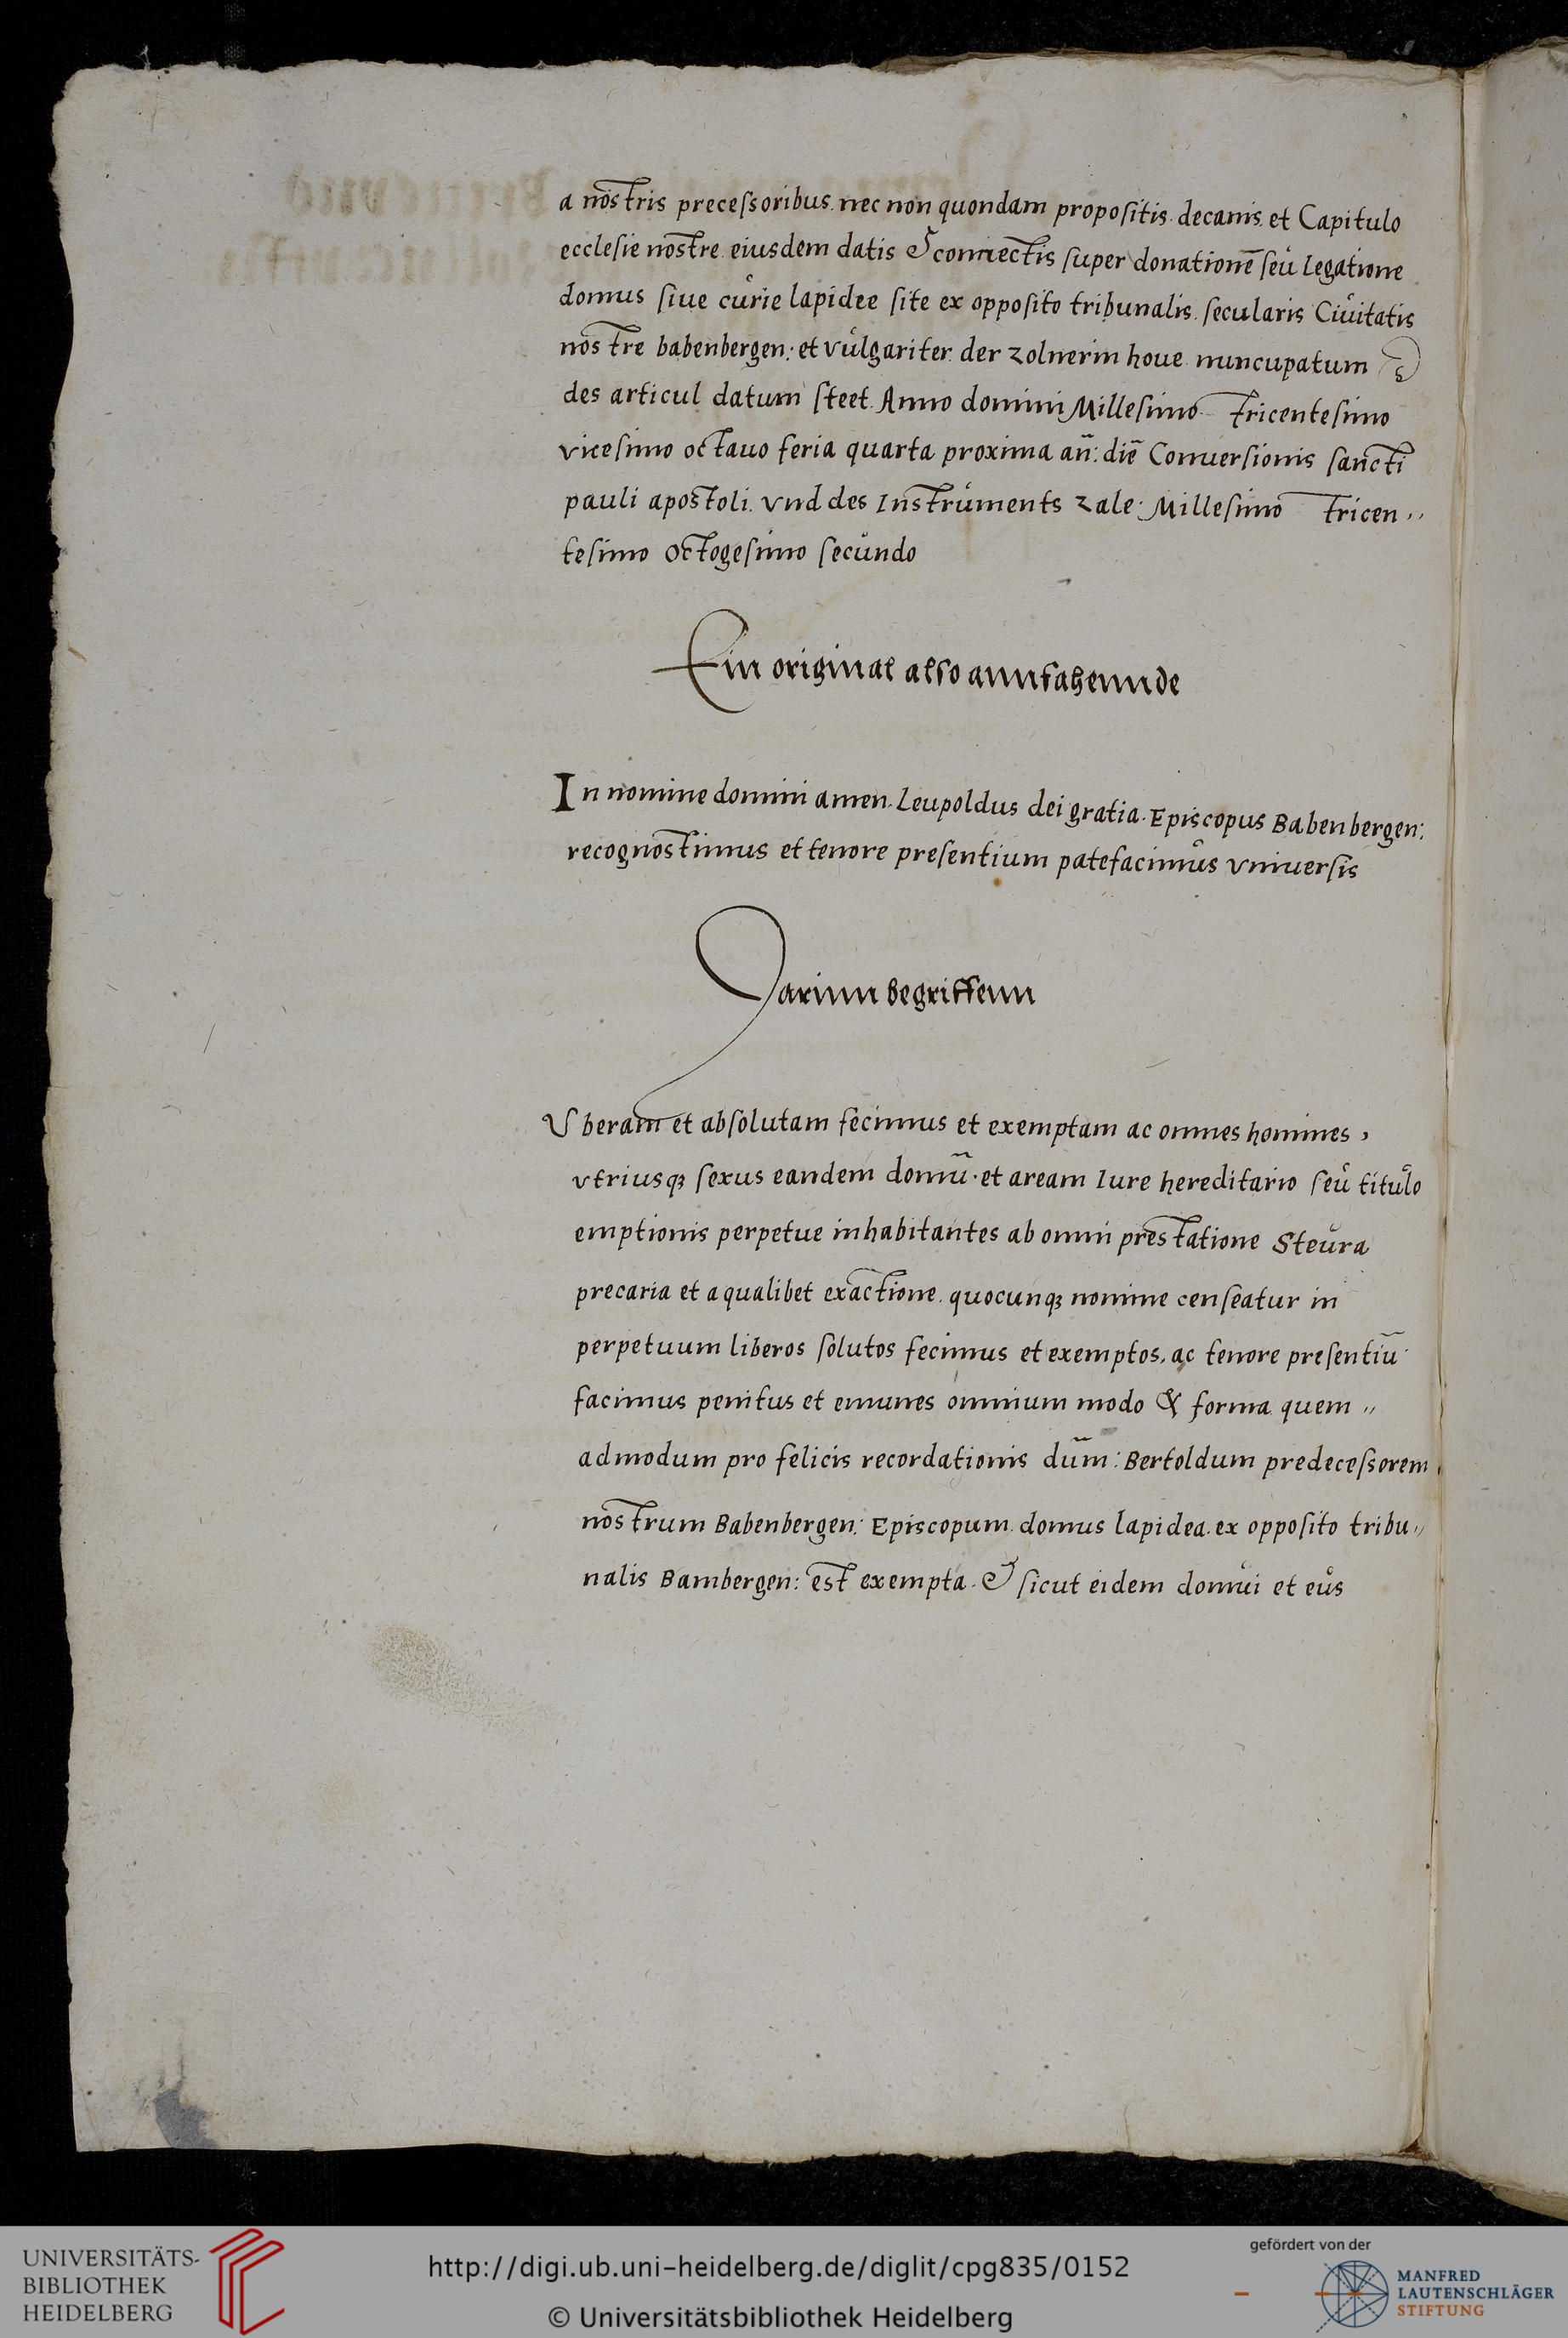 a nostris precessoribus. nec non quondam propositis. decanis. et Capitulo
ecclesie nostre. eiusdem datis & connectis super donationē seu legatione
domus siue curie lapidee site ex opposito tribunalis. secularis Ciuitatis
nostre babenbergen: et vulgariter. der zolnerin houe. nuncupatum
des articul datum steet. Anno domini Millesimo tricentesimo
vicesimo octauo feria quarta proxima an̄: diē Conuersionis sancti
pauli apostoli. vnd des Instruments zale: Millesimo tricen„
tesimo octogesimo secundo
Ein original also annfahennde
In nomine domini amen. Leupoldus dei gratia. Episcopus Babenbergen:
recognostimus et tenore presentium patefacimus vniuersis
Darinn begriffenn
Vberam et absolutam fecimus et exemptam ac omnes homines,
vtriusqꝫ sexus eandem domū. et aream Iure hereditario seu titulo
emptionis perpetue inhabitantes ab omni prestatione Steura
precaria et a qualibet exactione. quocunqꝫ nomine censeatur in
perpetuum liberos solutos fecimus et exemptos, ac tenore presentiū
facimus penitus et emunes omnium modo & forma quem„
admodum pro felicis recordationis dūm: Bertoldum predecessorem
nostrum Babenbergen: Episcopum. domus lapidea. ex opposito tribu„
nalis Bambergen: est exempta. & sicut eidem domui et eus
UNIVERSITÄTS-
BIBLIOTHEK
HEIDELBERG
http://digi.ub.uni-heidelberg.de/diglit/cpg835/0152
© Universitätsbibliothek Heidelberg
gefördert von der
MANFRED
LAUTENSCHLÄGER
STIFTUNG